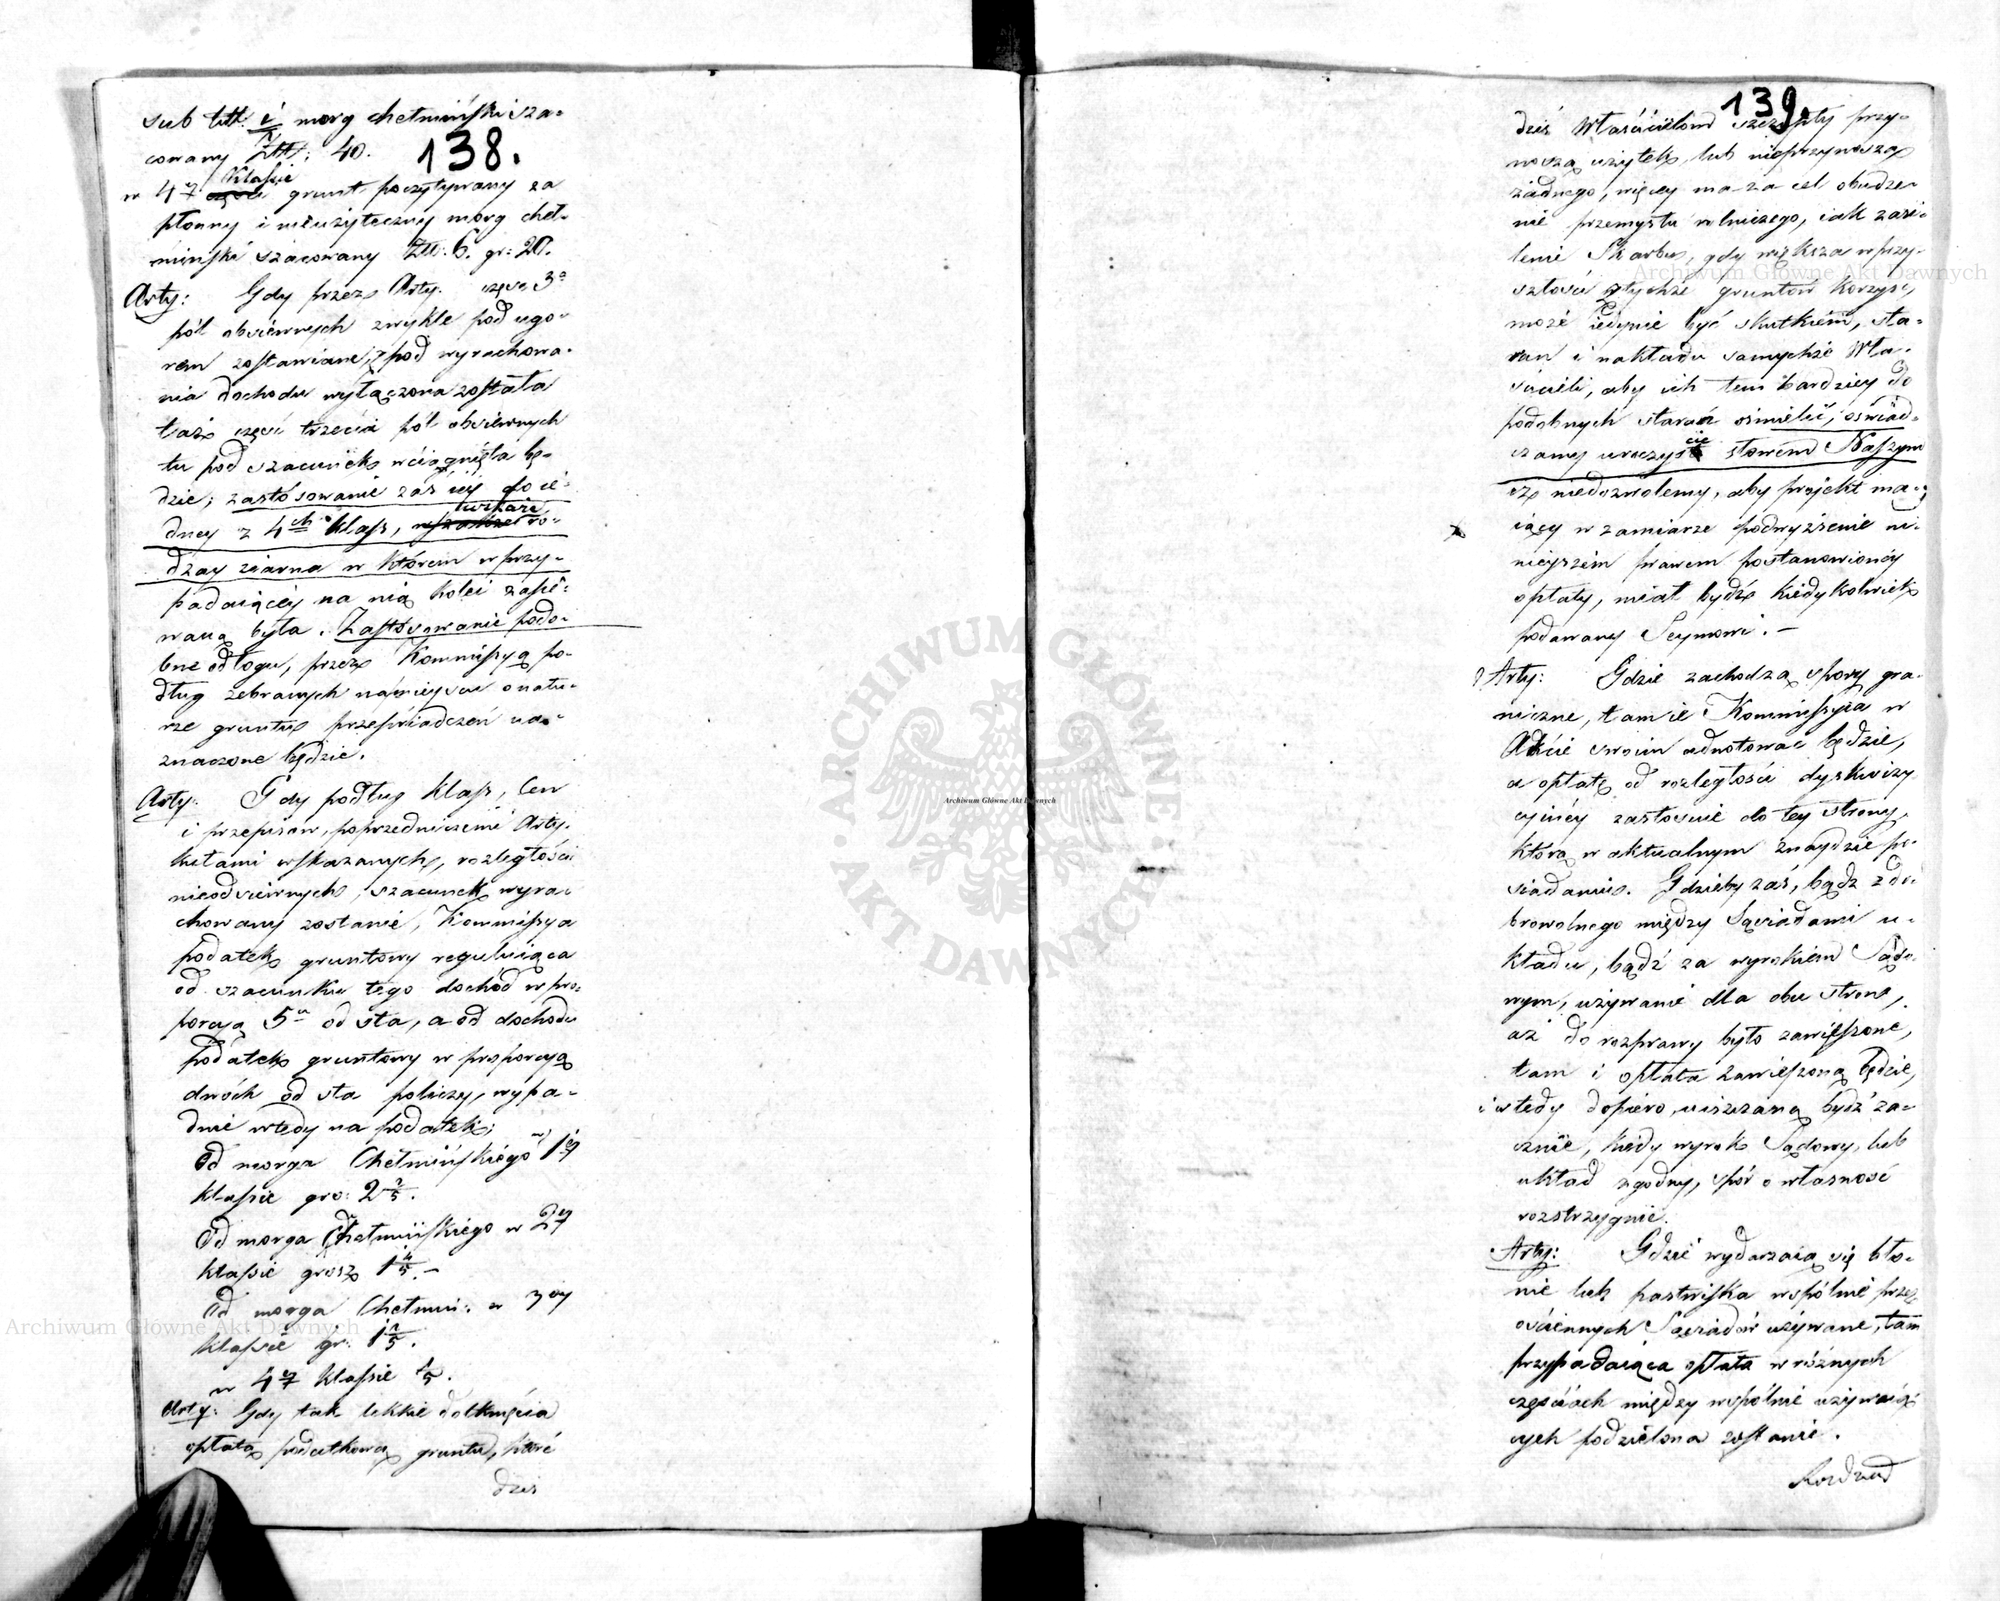 138.
sub litt: i morg chełmiński sza-
cowany Złł: 40.
w 4ey Klassie grunt poczytywany za
płonny i nieużyteczny morg cheł-
miński szacowany Złł: 6. gr: 20.
Arty: Gdy przez Arty. część 3a
pól obsiewnych zwykle pod ugo-
rem zostawiane, z pod wyrachowa-
nia dochodu wyłączona została
taż część trzecia pól obsiewnych
tu pod szacunek wciągnięta bę-
dzie; zastósowanie zaś iey do ie-
dney z 4ch klass, wskaże ro-
dzay ziarna w którem w przy-
padaiącéy na nią kolei zasie-
waną była. Zastósowanie podo-
bne odłogu, przez Kommissyą po-
dług zebranych na mieyscu o natu-
rze gruntu przeświadczeń na-
znaczone będzie.
Arty: Gdy podług klass, cen
i przepisów, poprzedniczemi Arty-
kułami wskazanych, rozległości
nieodsiewnych, szacunek wyra-
chowany zostanie, Kommissya
podatek gruntowy reguluiąca
od szacunku tego dochód w pro-
porcyą 5u od sta, a od dochodu
podatek gruntowy w proporcyą
dwóch od sta policzy, wypa-
dnie wtedy na podatek;
Od morga Chełmińskiégo w 1ey
klassie gro: 2 2/5.
Od morga Chełmińskiégo w 2ey
klassie grosz 1 4/5. –
Od morga Chełmin: w 3ey
klassie gr: 1 1/5.
w 4ey klassie 1/5.
Arty: Gdy tak lekkie dotknięcia
opłatą podatkową gruntu, które
dziś
139.
dziś Właścicielowi szczupły przy-
noszą użytek, lub nieprzynoszą
żadnego, więcey ma za cel obudze-
nie przemysłu rolniczego, iak zasi-
lenie Skarbu, gdy większa w przy-
szłości z tychże gruntów korzyść,
może iedynie być skutkiem, sta-
ran i nakładu samychże Wła-
ścicieli, aby ich tem bardziey do
podobnych starań ośmielić, oświad-
czamy uroczyście słowem Naszym
iż niedozwolemy, aby projekt ma-
iący w zamiarze podwyższenie ni-
nieyszém prawem postanowionéy
opłaty, miał bydź kiedykolwiek
podawany Seymowi. –
Arty: Gdzie zachodzą spory gra-
niczne, tam ie Kommissyia w
Akcie swoim adnotować będzie,
a opłatę od rozległości dyskwizy
cyinéy zastosuie do tey strony,
którą w aktualnym znaydzie po-
siadaniu. Gdzieby zaś, bądź z do-
browolnego między Sąsiadami u-
kładu, bądź za wyrokiem Sądo-
wym, używanie dla obu stron,
aż do rozprawy było zawieszone,
tam i opłata zawieszoną będzie,
i wtedy dopiero uiszczaną bydź za-
cznie, kiedy wyrok Sądowy, lub
układ zgodny, spór o własność
rozstrzygnie.
Arty: Gdzie wydarzaią się bło-
nie lub pastwiska wspólnie przez
ościennych Sąsiadów używane, tam
przypadaiąca opłata w różnych
częściach między wspólnie używaią-
cych podzielona zostanie.
Archiwum Główne Akt Dawnych
ARCHIWUM GŁÓWNE · AKT DAWNYCH ·
Archiwum Główne Akt Dawnych
Archiwum Główne Akt Dawnych